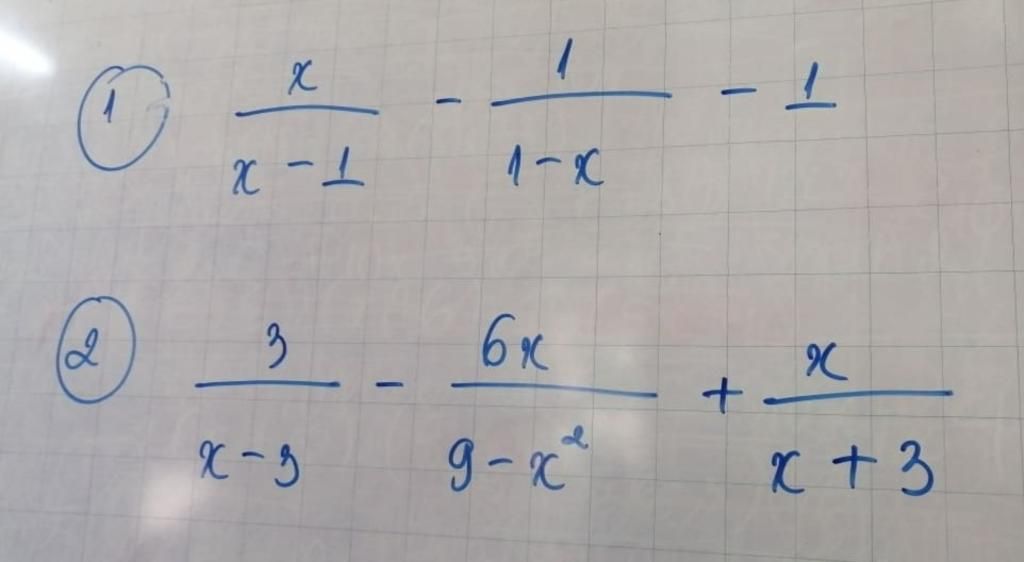 ① x/(x - 1) - 1/(1 - x) - 1
② 3/(x - 3) - 6x/(9 - x²) + x/(x + 3)